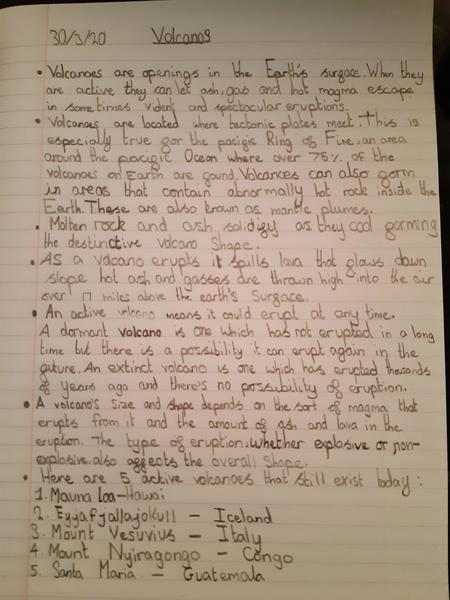 30/3/20 Volcanos
• Volcanoes are openings in the Earth's surface. When they
are active they can let ash, gas and hot magma escape
in sometimes violent and spectacular eruptions.
• Volcanoes are located where tectonic plates meet. This is
especially true for the pacific Ring of Fire, an area
around the pacific Ocean where over 75% of the
volcanoes on Earth are found. Volcances can also form
in areas that contain abnormally hot rock inside the
Earth. These are also known as mantle plumes.
• Molten rock and ash solidify as they cool forming
the distinctive volcano Shape.
• As a volcano erupts it spills lava that flows down
slope hot ash and gasses are thrown high into the air
over 17 miles above the earth's Surface.
• An active volcano means it could erupt at any time.
A dormant volcano is one which has not erupted in a long
time but there is a possibility it can erupt again in the
future. An extinct volcano is one which has erupted thousands
of years ago and there's no possibility of eruption.
• A volcano's size and shape depends on the sort of magma that
erupts from it and the amount of ash and lava in the
eruption. The type of eruption, whether explosive or non-
explosive, also affects the overall Shape.
• Here are 5 active volcanoes that still exist today:
1. Mauna Loa - Hawai
2. Eyjafjallajokull - Iceland
3. Mount Vesuvius - Italy
4. Mount Nyiragongo - Congo
5. Santa Maria - Guatemala